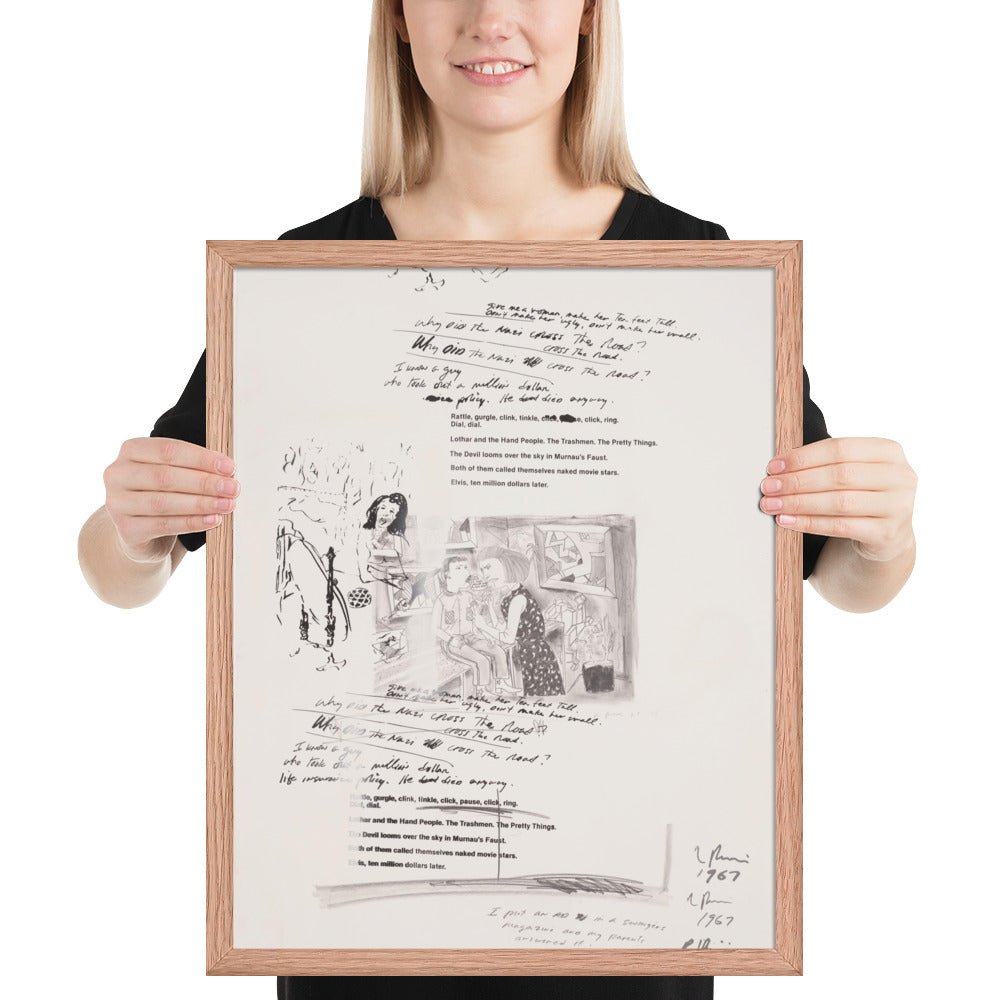 Give me a woman, make her Ten feet Tall.
Don't make her ugly, don't make her small.
Why DID The Nazi CROSS The Road?
CROSS The Road.
Why DID The Nazi CROSS The Road?
I know a guy
who took out a million dollar
policy. He died anyway.
Rattle, gurgle, clink, tinkle, click, pause, click, ring.
Dial, dial.
Lothar and the Hand People. The Trashmen. The Pretty Things.
The Devil looms over the sky in Murnau's Faust.
Both of them called themselves naked movie stars.
Elvis, ten million dollars later.
Give me a woman, make her Ten feet Tall.
Don't make her ugly, don't make her small.
Why DID The Nazi CROSS The Road
CROSS The Road.
Why DID The Nazi CROSS The Road?
I know a guy
who took out a million dollar
life insurance policy. He died anyway.
Rattle, gurgle, clink, tinkle, click, pause, click, ring.
Dial, dial.
Lothar and the Hand People. The Trashmen. The Pretty Things.
The Devil looms over the sky in Murnau's Faust.
Both of them called themselves naked movie stars.
Elvis, ten million dollars later.
1967
1967
I put an AD in a swingers
magazine and my parents
answered it.